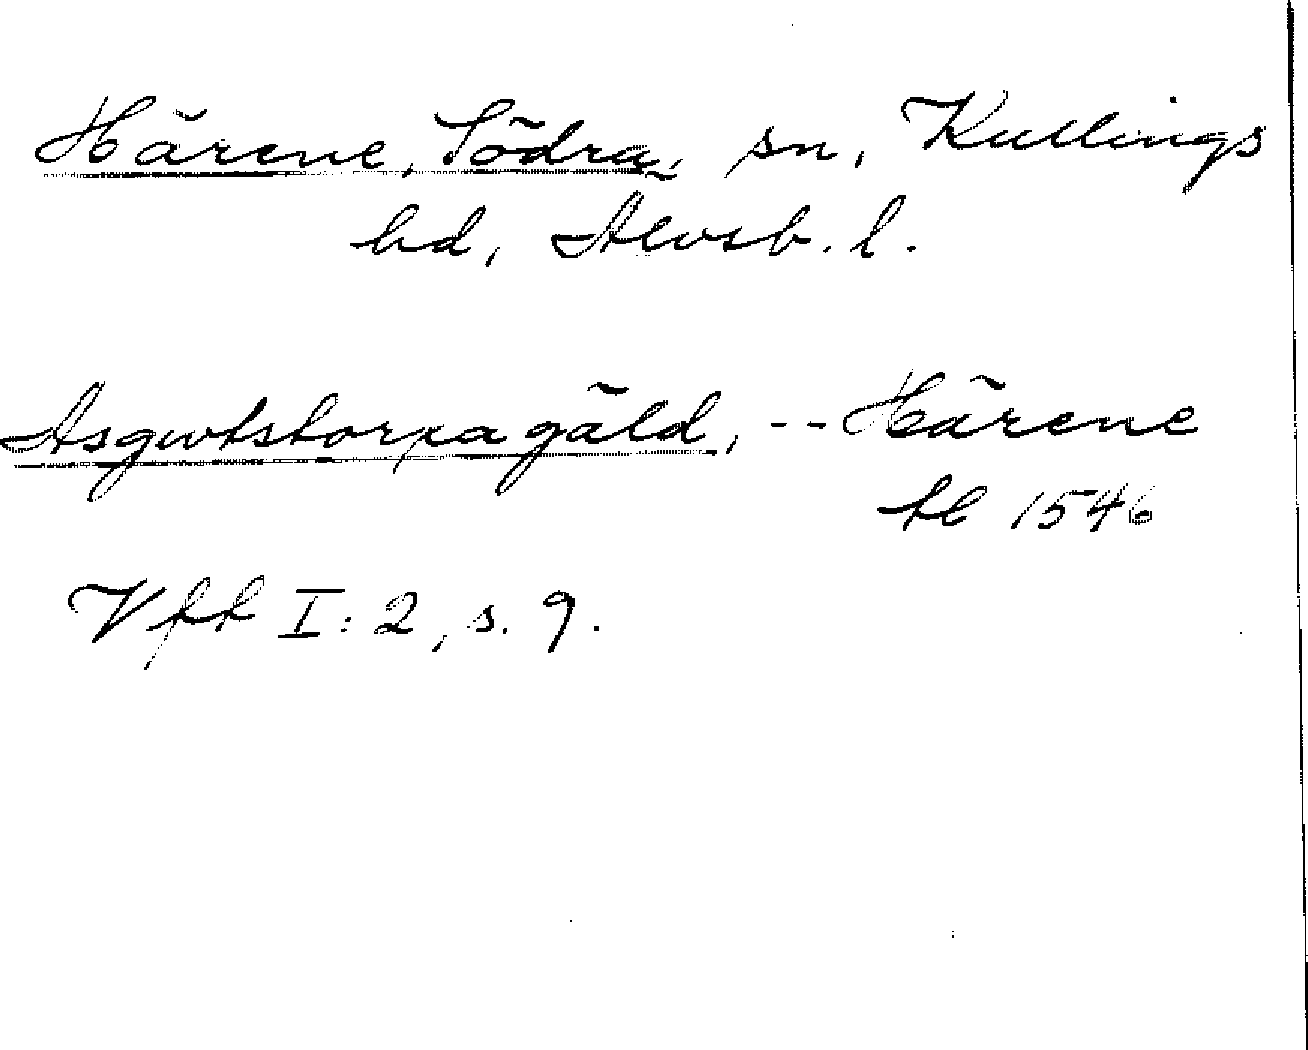 Härene, Södra, sn, Kullings
hd, Älvsb. l.
Asgutstorpagäld, -- Härene
kl 1546
Vft I: 2, s. 9.